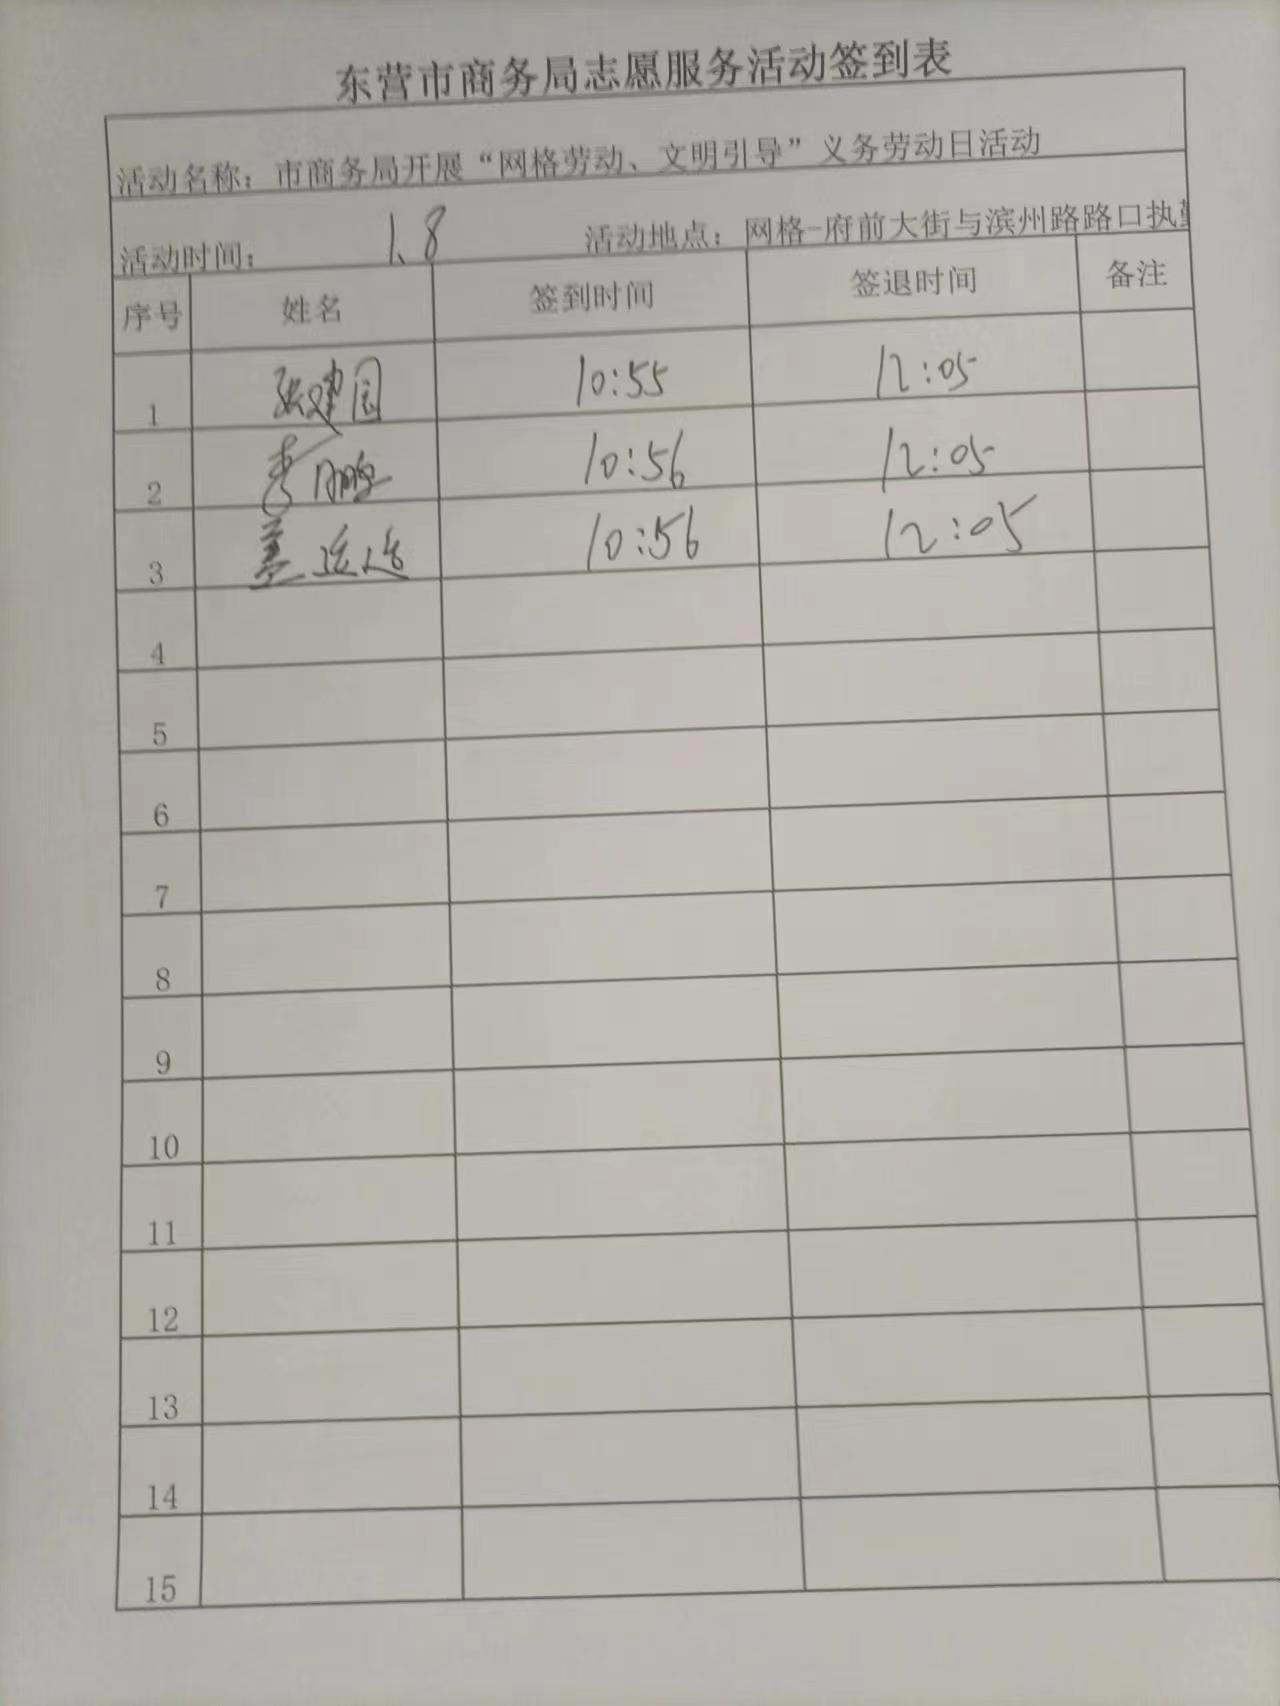 东营市商务局志愿服务活动签到表
活动名称：市商务局开展“网格劳动、文明引导”义务劳动日活动
活动时间： 1.8 活动地点：网格-府前大街与滨州路路口执勤
序号 姓名 签到时间 签退时间 备注
1 张建国 10:55 12:05
2 李鹏 10:56 12:05
3 盖 10:56 12:05
4
5
6
7
8
9
10
11
12
13
14
15